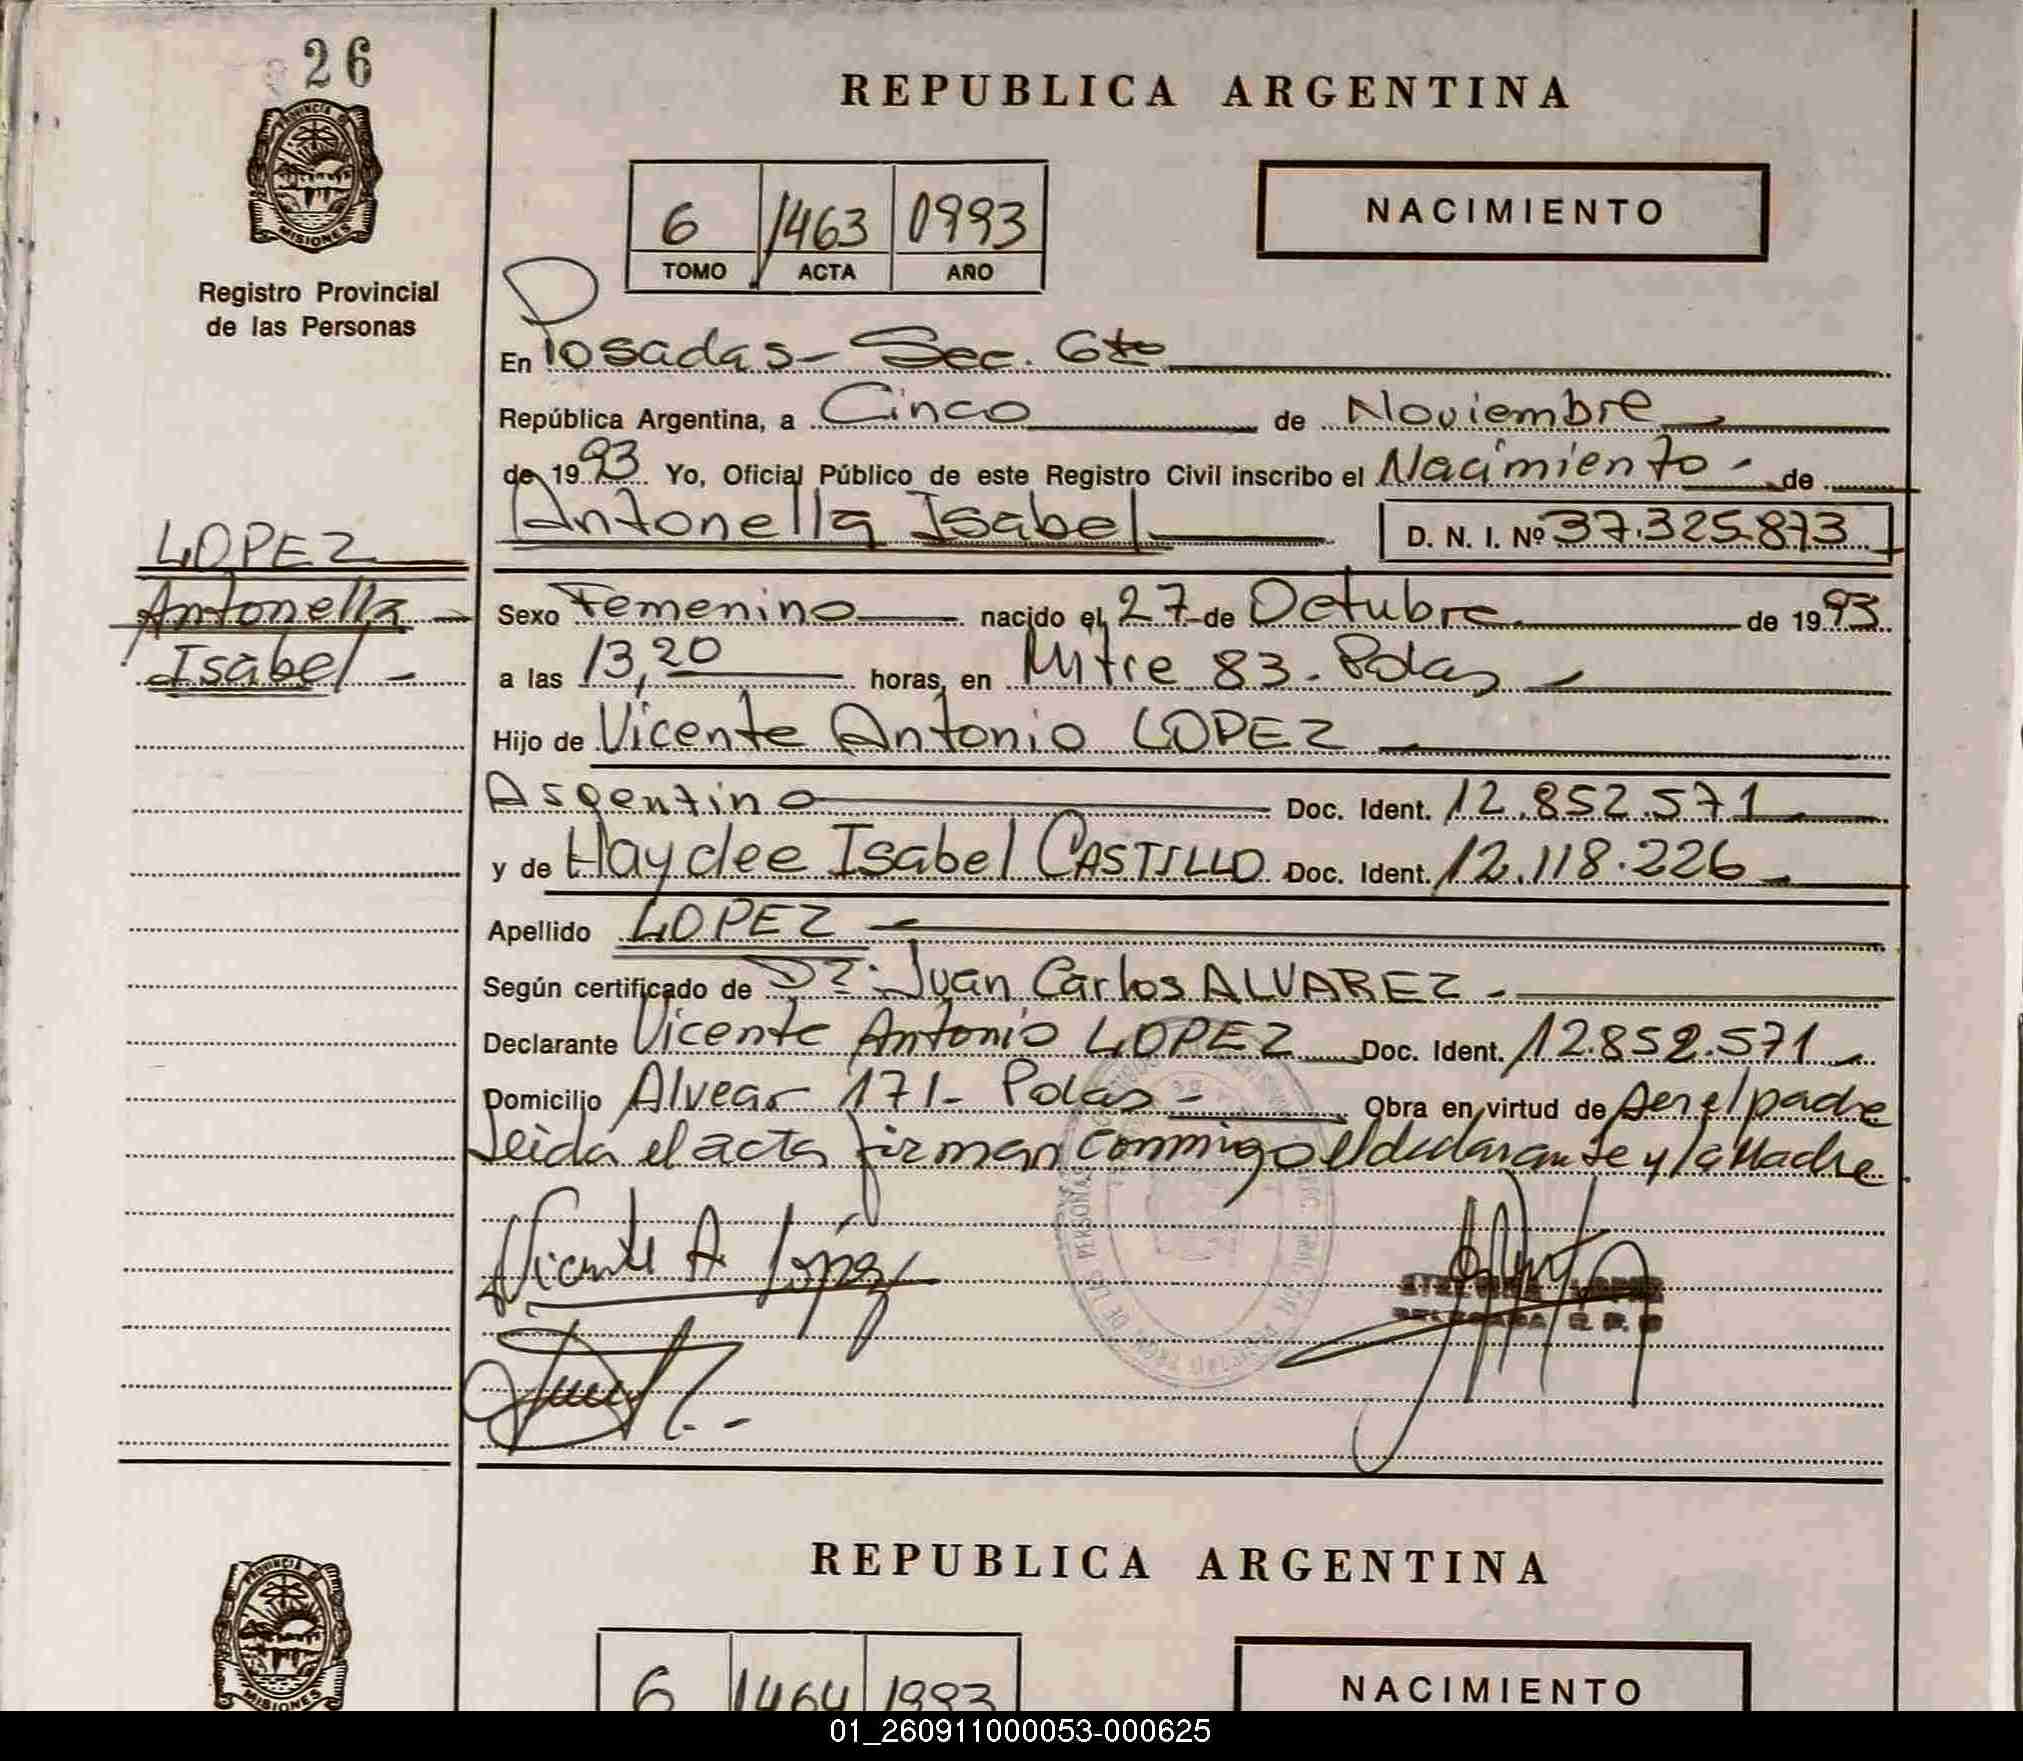 26
REPUBLICA ARGENTINA
PROVINCIA DE
MISIONES
Registro Provincial
de las Personas
6 1463 0993
TOMO ACTA AÑO
NACIMIENTO
En Posadas - Sec. 6to
República Argentina, a Cinco de Noviembre
de 1993 Yo, Oficial Público de este Registro Civil inscribo el Nacimiento - de
Antonella Isabel D. N. I. Nº 37.325.873
LOPEZ
Antonella
Isabel -
Sexo Femenino nacido el 27 de Octubre de 1993
a las 13,20 horas, en Mitre 83. Pdas
Hijo de Vicente Antonio LOPEZ
Argentino Doc. Ident. 12.852.571
y de Haydee Isabel CASTILLO Doc. Ident. 12.118.226
Apellido LOPEZ
Según certificado de Dr: Juan Carlos ALVAREZ -
Declarante Vicente Antonio LOPEZ Doc. Ident. 12.852.571
Domicilio Alvear 171 - Pdas - Obra en virtud de ser el padre
Leida el acta firman conmigo el declarante y la Madre
Vicente A López
LOPEZ
DELEGADA R. P.
REPUBLICA ARGENTINA
PROVINCIA DE
MISIONES
6 1464 1993
NACIMIENTO
01_260911000053-000625